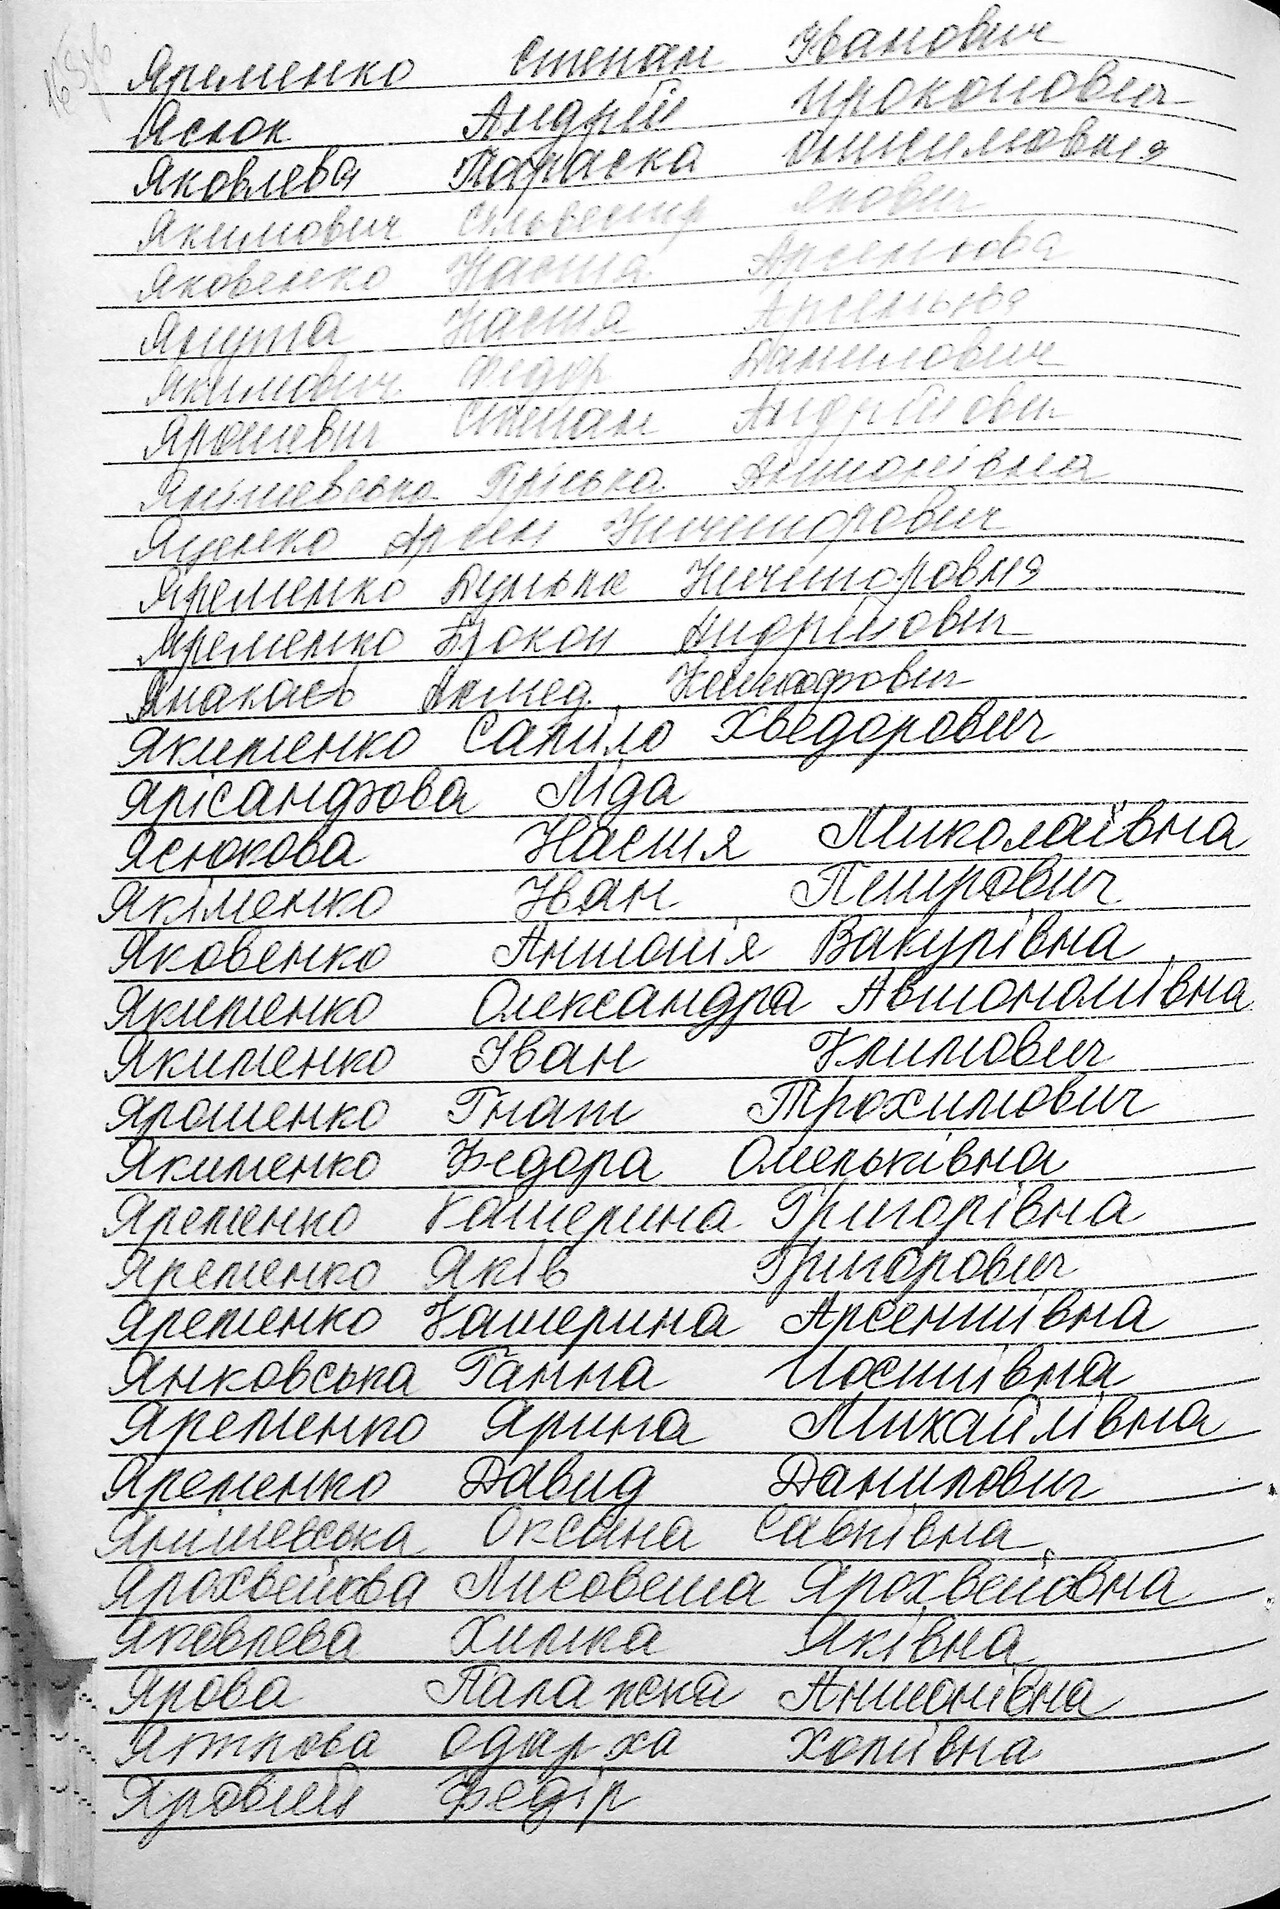 Яременко Степан Іванович
Ясюк Андрій Прокопович
Яковлева Параска Онисимовня
Якимович Сильвестр Якович
Яковенко Настя Арсеньова
Ящута Настя Арсеньовя
Якимович Федор Данилович
Ярошевич Степан Андрійович
Янішевська Пріська Антонівна
Яценко Арсен Ничипорович
Яременко Дунька Ничипоровня
Яременко Прокоп Андрійович
Ахмед
Якименко Саміло Хведорович
Ярісандрова Ліда
Ясюкова Настя Миколаївна
Якіменко Іван Петрович
Яковенко Антонія Вакулівна
Якименко Олександра Автономівна
Якименко Іван Климович
Ярошенко Гнат Трохимович
Якименко Федора Омельківна
Яременко Катерина Григорівна
Яременко Яків Григорович
Яременко Катерина Арсентіївна
Янковська Ганна Иосипівна
Яременко Ярина Михайлівна
Яременко Давид Данилович
Янішевська Оксана Савківна
Ярохвейова Лисовета Ярохвейовна
Яковлева Химка Яківна
Ярова Палажка Антонівна
Одарха
Яровий Федір